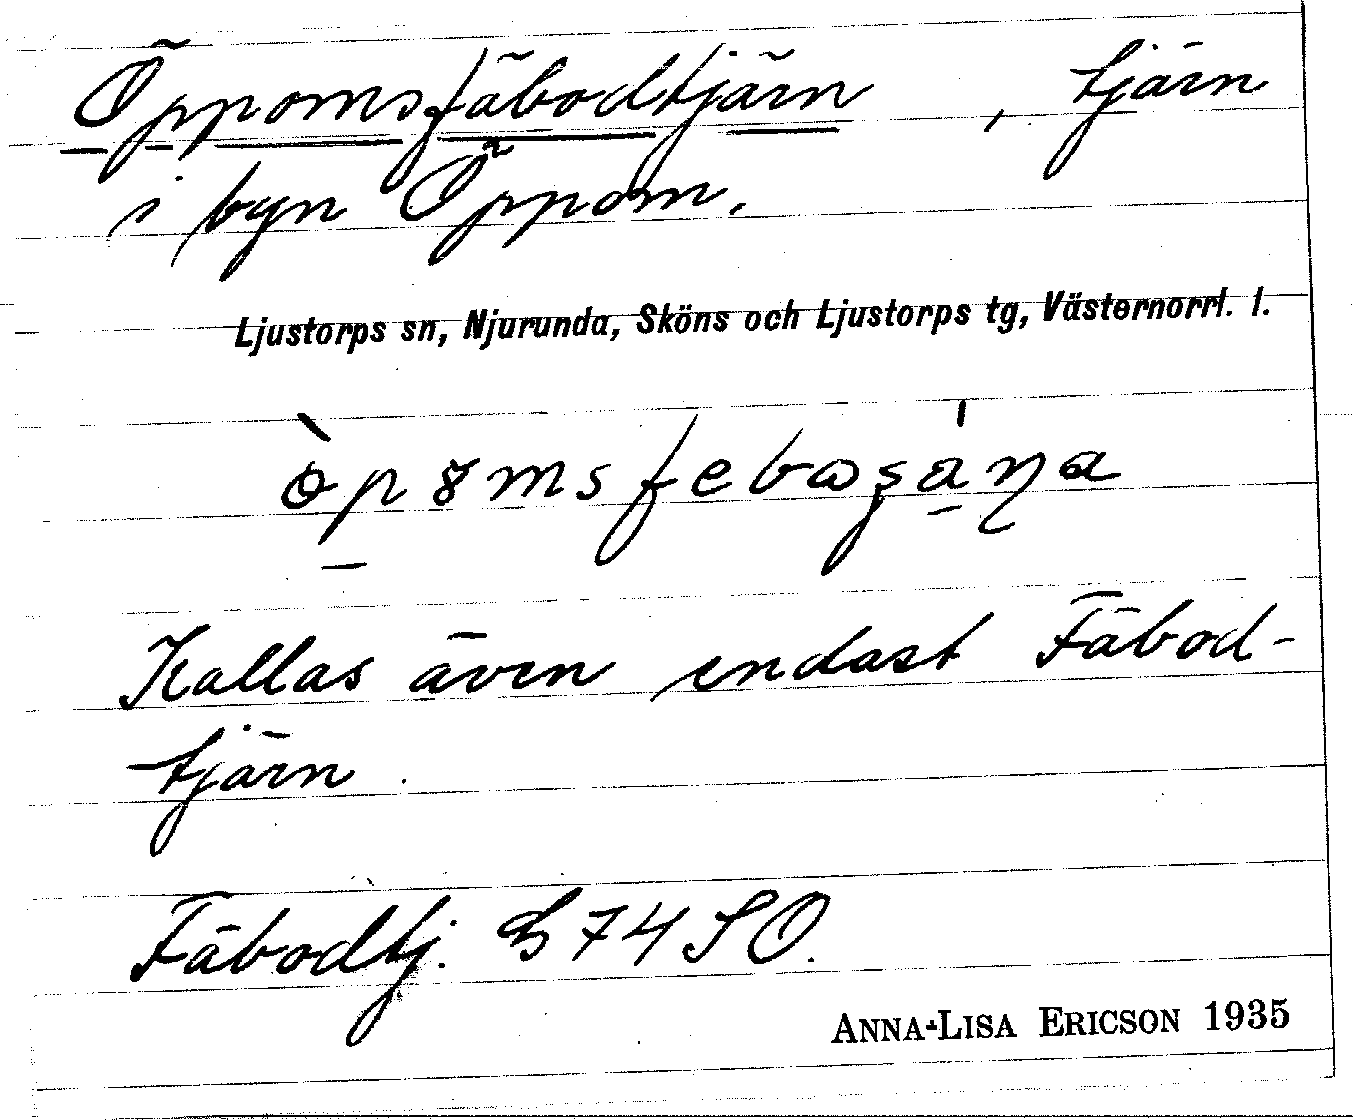 Öppomsfäbodtjärn, tjärn
i byn Öppom.
Ljustorps sn, Njurunda, Sköns och Ljustorps tg, Västernorrl. l.
Kallas även endast Fäbod-
tjärn.
Fäbodtj. 74 SO.
ANNA-LISA ERICSON 1935